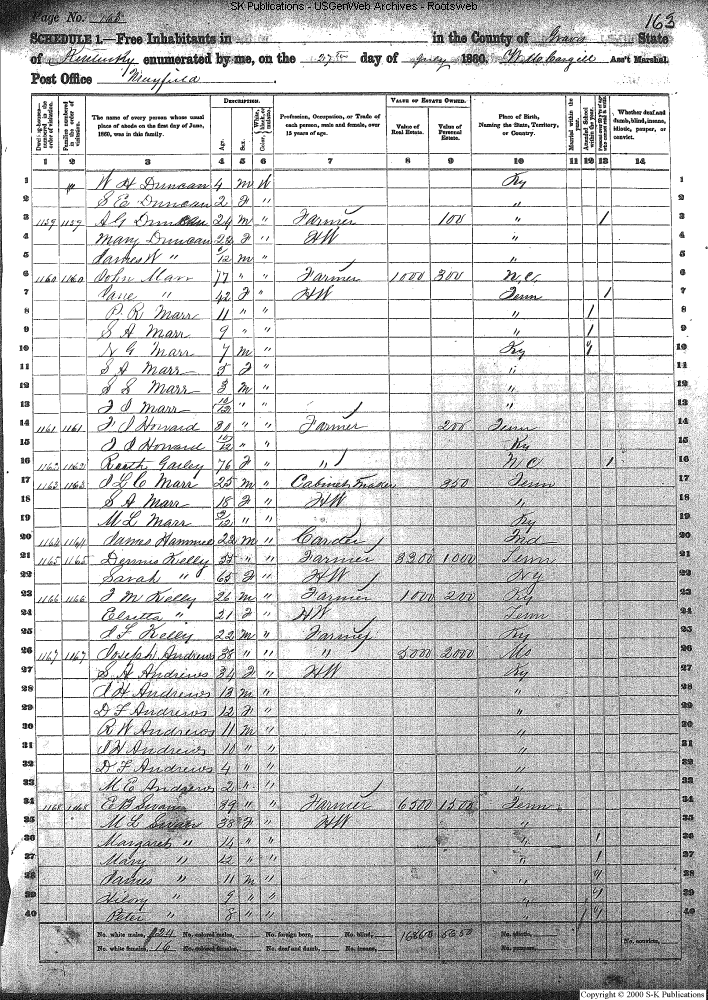 SK Publications - USGenWeb Archives - Rootsweb
Page No. 163
SCHEDULE 1.—Free Inhabitants in in the County of Graves State
of Kentucky enumerated by me, on the 27th day of July 1860. Ass't Marshal.
Post Office Mayfield
DESCRIPTION. VALUE OF ESTATE OWNED.
Dwelling-houses—numbered in the order of visitation. Families numbered in the order of visitation. The name of every person whose usual place of abode on the first day of June, 1860, was in this family. Age. Sex. Color, White, black, or mulatto. Profession, Occupation, or Trade of each person, male and female, over 15 years of age. Value of Real Estate. Value of Personal Estate. Place of Birth, Naming the State, Territory, or Country. Married within the year. Attended School within the year. Whether deaf and dumb, blind, insane, idiotic, pauper, or convict.
1 2 3 4 5 6 7 8 9 10 11 12 13 14
1 W H Duncan 4 m W Ky 1
2 S E Duncan 2 F " " 2
3 1159 1159 A G Duncan 24 m " Farmer 100 " / 3
4 Mary Duncan 22 F " HW " 4
5 James W " /12 m " " 5
6 1160 1160 John Marr 77 " " Farmer 1000 300 N.C. 6
7 Jane " 42 F " HW Tenn / 7
8 P. R Marr 11 " " " / 8
9 S A Marr 9 " " " / 9
10 N G Marr 7 m " Ky 10
11 S A Marr 5 F " " 11
12 S S Marr 3 m " " 12
13 J J Marr 10/12 " " " 13
14 1161 1161 J Howard 30 " " Farmer 200 Tenn 14
15 J J Howard 10/12 " " Ky 15
16 1162 1162 Gailey 76 F " " N C / 16
17 1163 1163 J L C Marr 25 m " Cabinet Maker 350 Tenn 17
18 S A Marr 18 F " HW " 18
19 M L Marr /12 " " Ky 19
20 1164 1164 James 22 m " Carder Ind 20
21 1165 1165 Dennis Kelly " " Farmer 3200 1000 Tenn 21
22 Sarah " 65 F " HW 22
23 1166 1166 J M Kelly 26 m " Farmer 1000 200 Ky 23
24 " 21 F " HW Tenn 24
25 J F Kelly 22 m " Farmer Ky 25
26 1167 1167 Joseph Andrews 38 " " " 5000 2000 Mo 26
27 S A Andrews 34 F " HW Ky 27
28 J H Andrews 13 m " " 28
29 D F Andrews 12 F " " 29
30 R W Andrews 11 m " " 30
31 J H Andrews 10 " " " 31
32 D F Andrews 4 " " " 32
33 M E Andrews 2 " " " 33
34 1168 1168 E B Swann 39 " " Farmer 6500 1500 Tenn 34
35 M L Swann 38 F " HW " 35
36 Margaret " 14 " " " / 36
37 Mary " 12 " " " / 37
38 James " 11 m " " 38
39 " 9 " " " 39
40 Peter " 8 " " " 40
No. white males, 24 No. colored males, No. foreign born, No. blind, 5650 No. idiotic,
No. white females, 16 No. colored females, No. deaf and dumb, No. insane, No. paupers, No. convicts,
Copyright © 2000 S-K Publications